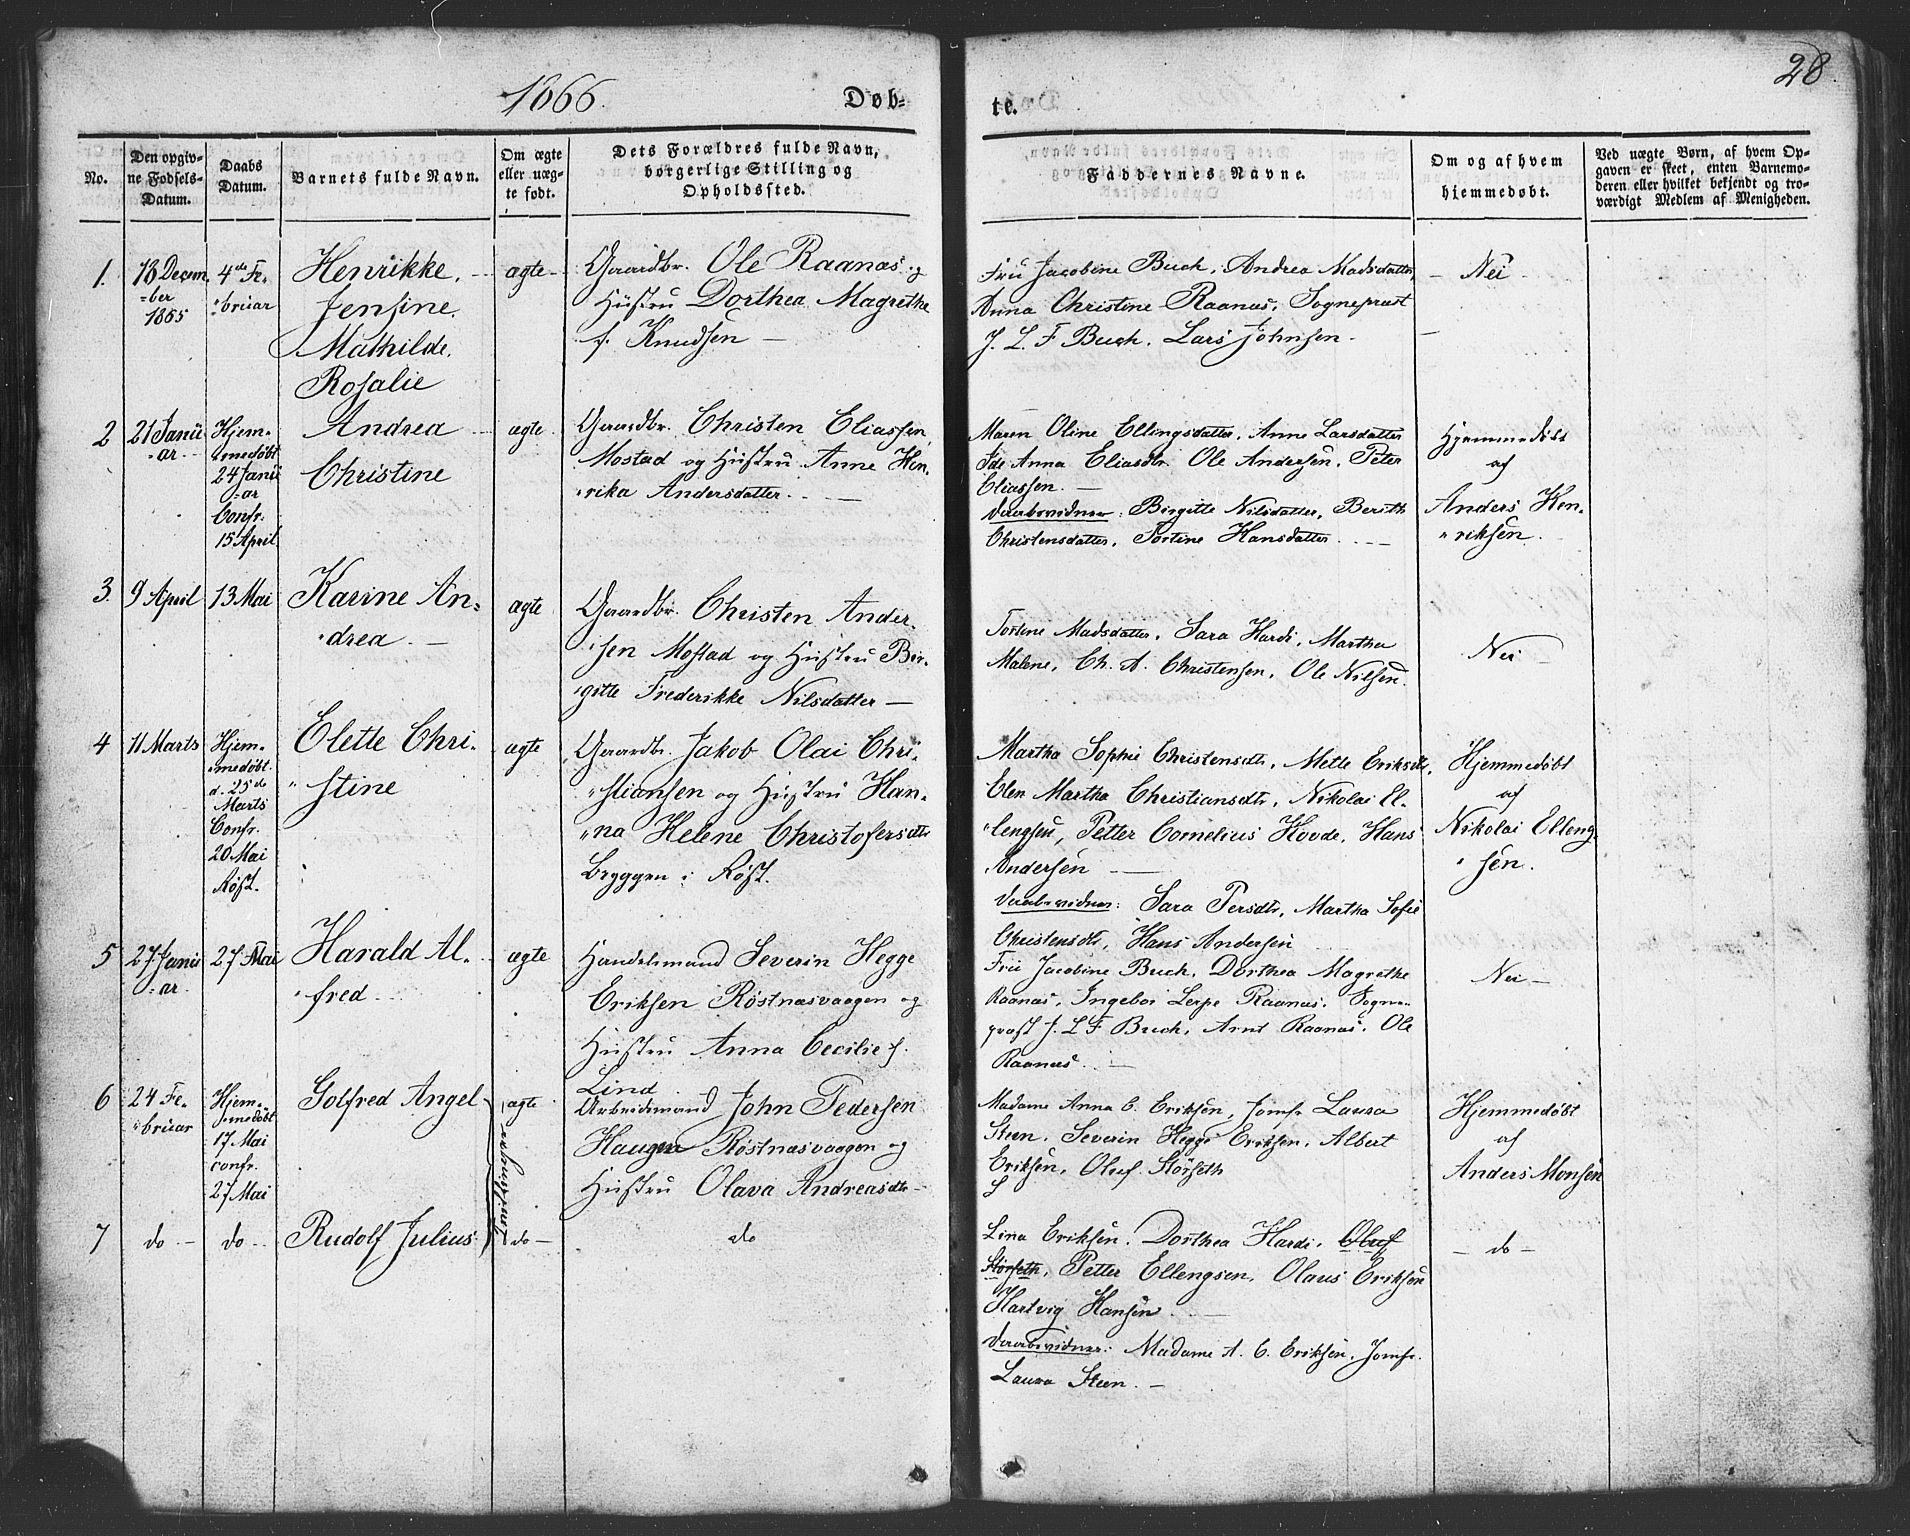 1866.
Døb-
te.
28.
No.
Den opgiv-
ne Fødsels-
Datum.
Daabs
Datum.
Barnets fulde Navn.
Om ægte
eller uæg-
te født.
Dets Forældres fulde Navn,
borgerlige Stilling og
Opholdssted.
Faddernes Navne.
Om og af hvem
hjemmedøbt.
Ved uægte Børn, af hvem Op-
gaven er skeet, enten Barnemo-
deren eller hvilket bekjendt og tro-
værdigt Medlem af Menigheden.
1.
13 Decem
-ber
1865
4de Fe-
bruar
Henrikke
Jensine
Mathilde
Rosalie
ægte
Gaardbr. Ole Raanas og
Hustru Dorthea Magrethe
f. Knudsen
Fru Jacobine Buch, Andrea Madsdatter
Anna Christine Raanas, Sognepræst
J. L. F Buch, Lars Johnsen
Nei
2
21 Janu
-ar
Hjem-
medøbt
24 Janu
-ar
Confr.
15 April
Andrea
Christine
ægte
Gaardbr. Christen Eliassen
Mostad og Hustru Anne Hen-
rika Andersdatter
Maren Oline Ellingsdatter, Anne Larsdatter
Ide Anna Eliasdtr. Ole Andersen, Peter
Eliassen
Daabsvidner: Birgitte Nilsdatter, Berith
Christensdatter, Tortine Hansdatter
Hjemmedøbt
af
Anders Hen-
riksen
3.
9 April
13 Mai
Karine An-
drea
ægte
Gaardbr. Christen Ander-
sen Mostad og Hustru Bir-
gitte Frederikke Nilsdatter
Tortine Madsdatter, Sara Hardi, Martha
Malene, Ch. A. Christensen, Ole Nilsen
Nei
4
11 Marts
Hjem-
medøbt
d. 25de
Marts
Confr.
20 Mai
Røst.
Elette Chri-
stine
ægte
Gaardbr. Jakob Olai Chri-
stiansen og Hustru Han-
na Helene Christofersdtr
Bryggen i Røst.
Martha Sophie Christensdtr, Mette Eriksdtr,
Elen Martha Christiansdtr, Nikolai El-
lengsen, Petter Cornelius Hovde, Hans
Andersen
Daabsvidner: Sara Persdtr, Martha Sofie
Christensdtr, Hans Andersen
Hjemmedøbt
af
Nikolai Elleng-
sen.
5
27 Janu
-ar
27 Mai
Harald Al-
fred
ægte
Handelsmand Severin Hegge
Eriksen Røstnasvaagen og
Hustru Anna Cecilie f.
Lind
Fru Jacobine Buch, Dorthea Magrethe
Raanas, Ingebor Lerpe Raanas, Sogne-
præst J. L F Buch, Arnt Raanas, Ole
Raanas
Nei
6
24 Fe-
bruar
Hjem-
medøbt
17 Mai
confr.
27 Mai
Golfred Angel
ægte
Arbeidsmand John Pedersen
Haugen Røstnasvaagen og
Hustru Olava Andreasdtr
Madame Anna C. Eriksen, Jomfr Laura
Steen, Severin Hegge Eriksen, Albert
Eriksen, Oluf Størseth
Hjemmedøbt
af
Anders Monsen
7
do
do
Rudolf Julius
do
do
Lina Eriksen, Dorthea Hardi, Oluf
Størseth, Petter Ellengsen, Olaus Eriksen
Hartvig Hansen
Daabsvidner: Madame A. C. Eriksen, Jomfr.
Laura Steen.
do